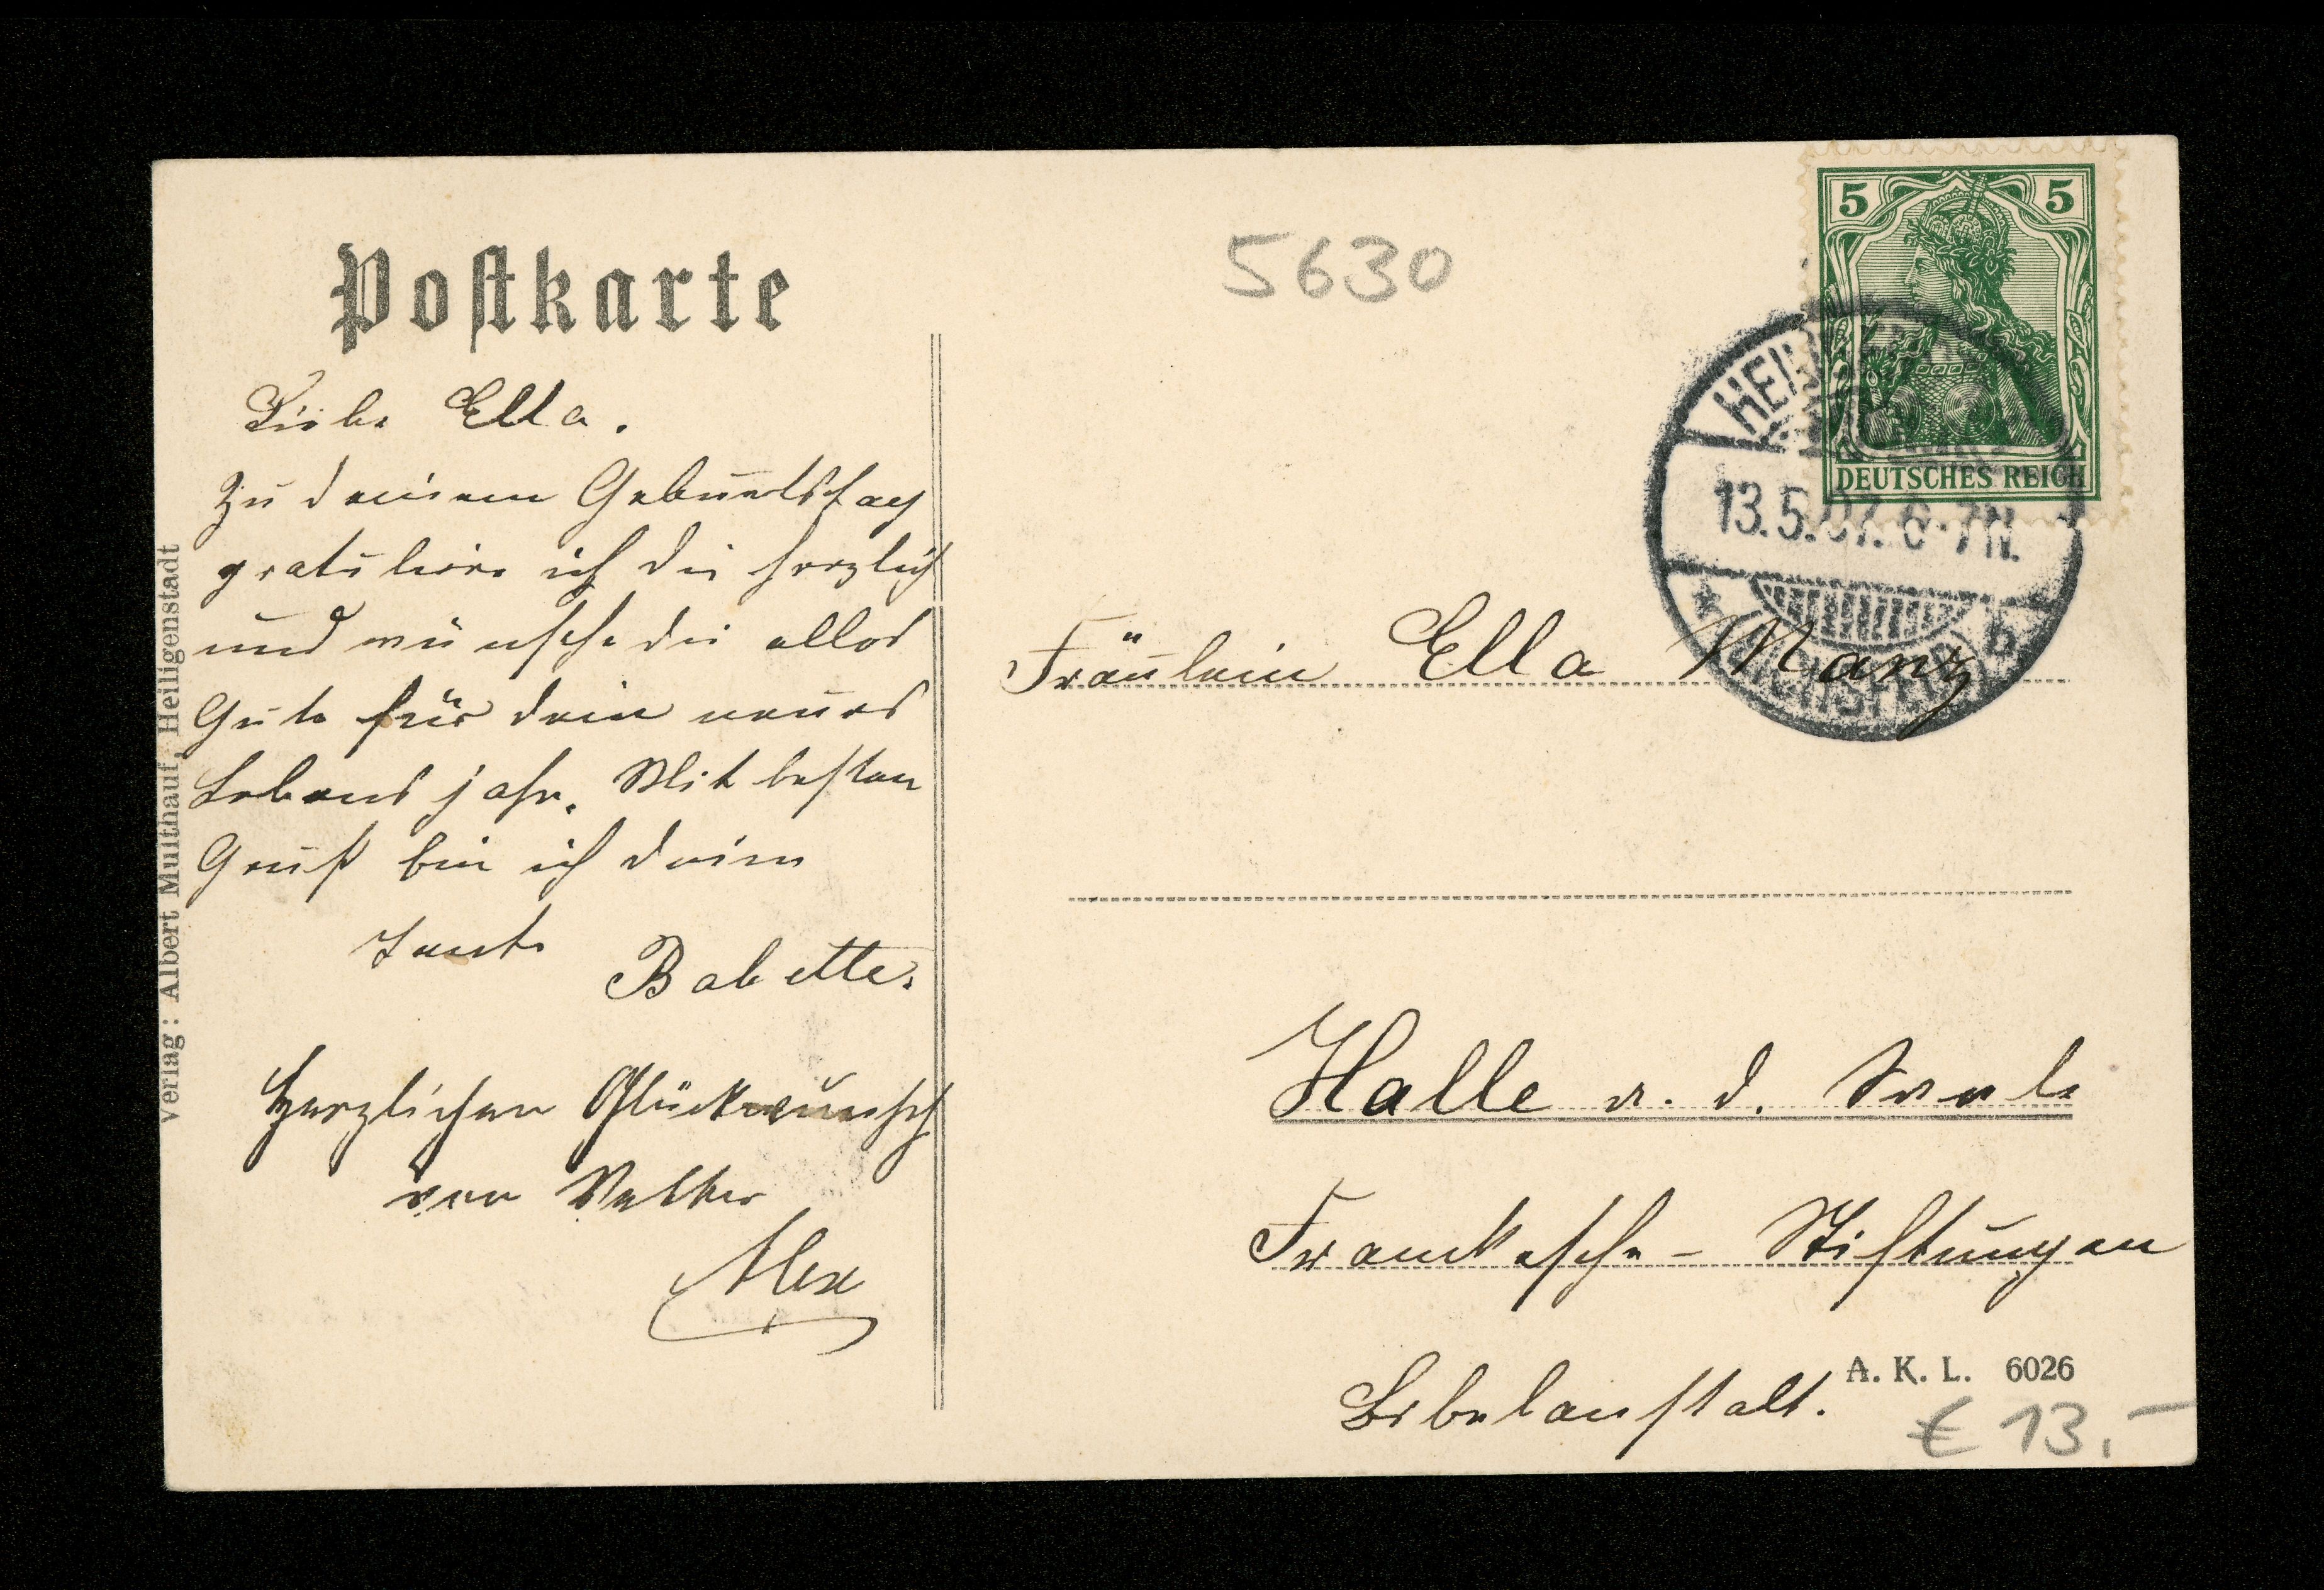 Postkarte
Liebe Ella.
Zu deinem Geburtstag
gratuliere ich dir herzlich
und wünsche dir alles
Gute für dein neues
Lebensjahr. Mit besten
Gruß bin ich deine
Tante Babette.
Herzlichen Glückwunsch
von Vetter
Alex
Verlag: Albert Multhauf, Heiligenstadt
5630
5 5
DEUTSCHES REICH
HEILIGENSTADT
13.5.07. 6-7N.
* (EICHSFELD) b
Fräulein Ella Manz
Halle a. d. Saale
Franckesche-Stiftungen
Bibelanstalt.
A. K. L. 6026
€ 13,-